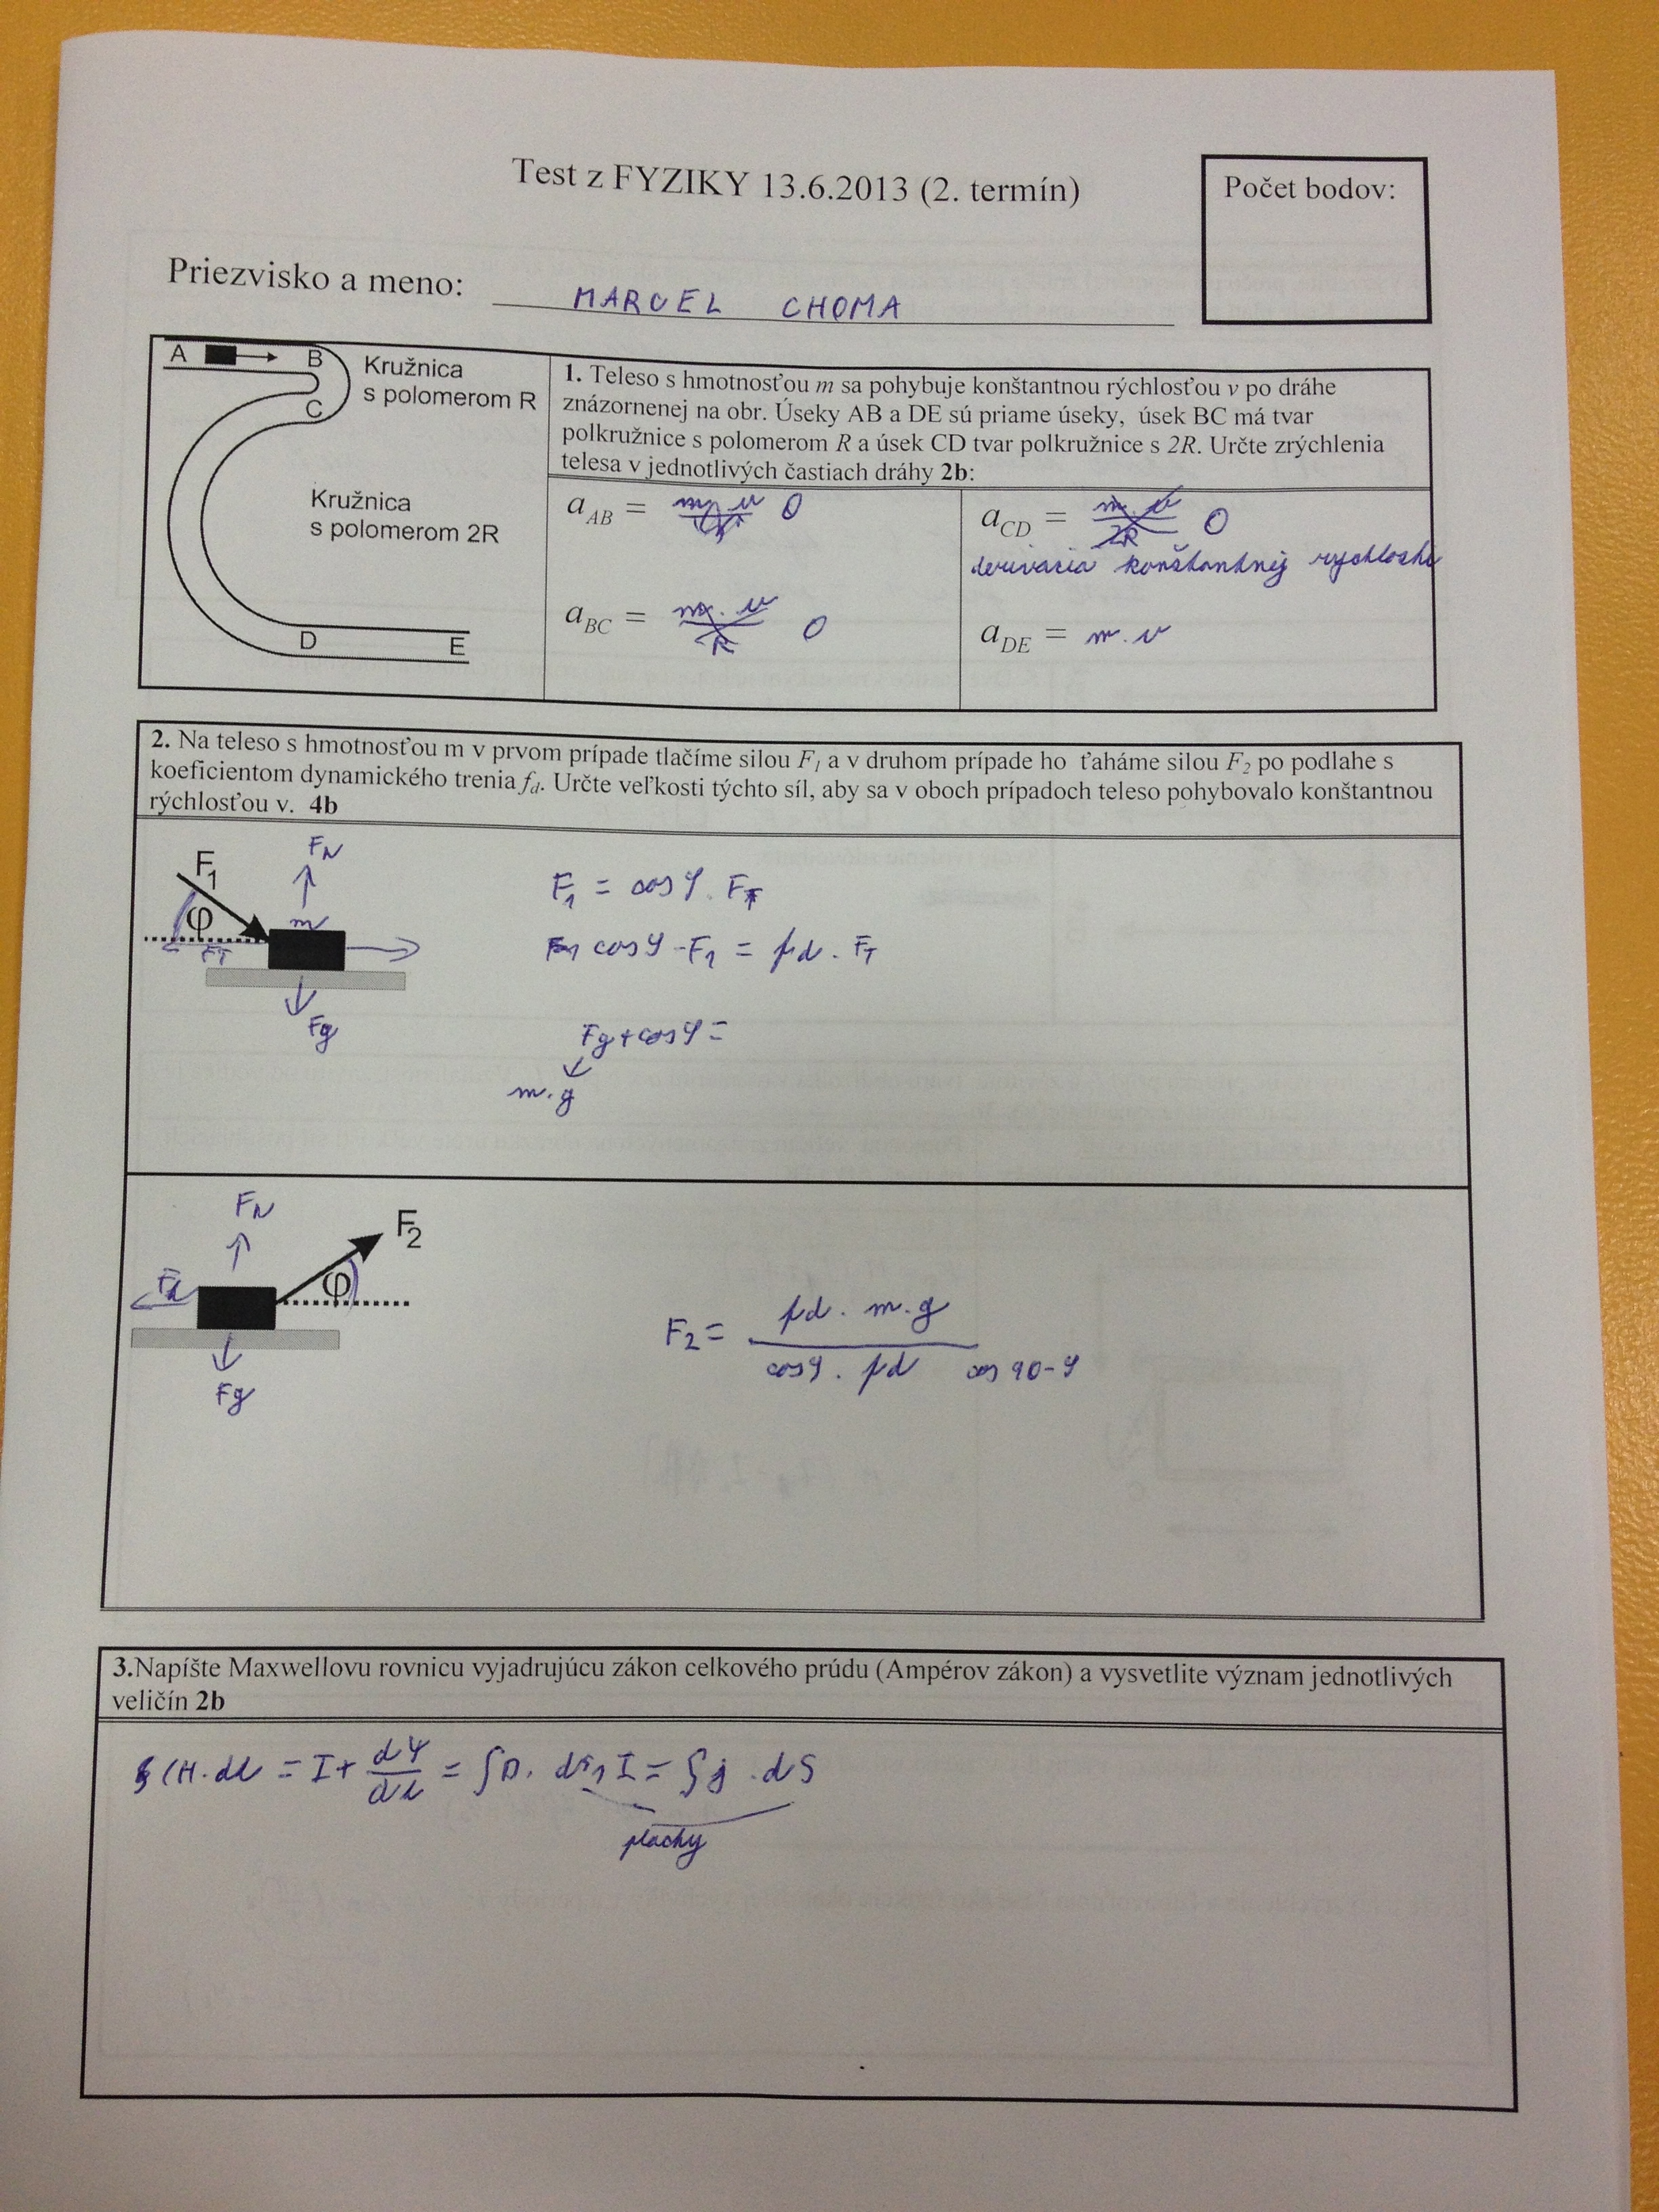 Test z FYZIKY 13.6.2013 (2. termín)
Počet bodov:
Priezvisko a meno: MARCEL CHOMA
A B
C
D E
Kružnica
s polomerom R
Kružnica
s polomerom 2R
1. Teleso s hmotnosťou m sa pohybuje konštantnou rýchlosťou v po dráhe
znázornenej na obr. Úseky AB a DE sú priame úseky, úsek BC má tvar
polkružnice s polomerom R a úsek CD tvar polkružnice s 2R. Určte zrýchlenia
telesa v jednotlivých častiach dráhy 2b:
a_AB = 0
a_CD = m.v/2R 0
derivacia konštantnej rychlosti
a_BC = m.v/R 0
a_DE = m.v
2. Na teleso s hmotnosťou m v prvom prípade tlačíme silou F1 a v druhom prípade ho ťaháme silou F2 po podlahe s
koeficientom dynamického trenia fd. Určte veľkosti týchto síl, aby sa v oboch prípadoch teleso pohybovalo konštantnou
rýchlosťou v. 4b
FN
F1
φ
m
FT
Fg
F1 = cos φ . FT
F1 cos φ - F1 = fd . FT
Fg + cos φ =
m.g
FN
F2
φ
Fg
F2 = fd . m.g
cos φ . fd cos 90-φ
3.Napíšte Maxwellovu rovnicu vyjadrujúcu zákon celkového prúdu (Ampérov zákon) a vysvetlite význam jednotlivých
veličín 2b
H.dl = I + dΨ/dt = ∫D. dS, I = ∫j .dS
plochy